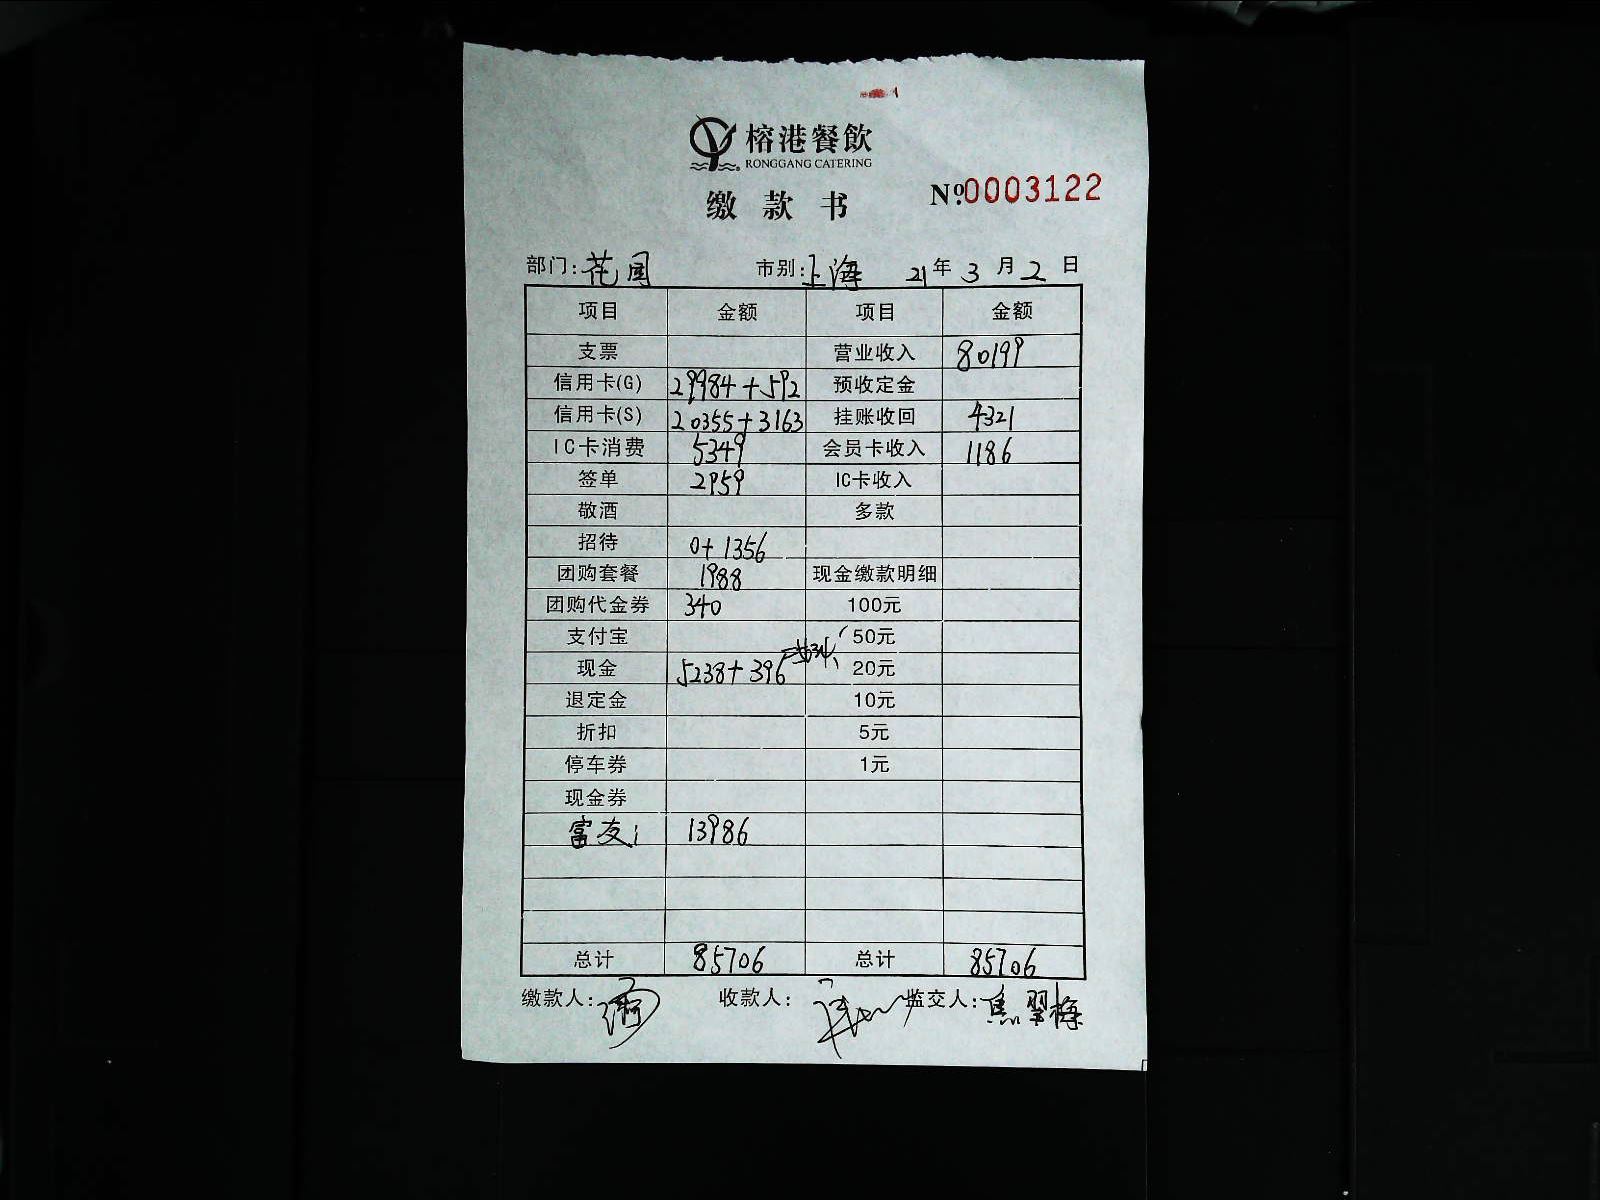 榕港餐飲
RONGGANG CATERING
缴款书
No.0003122
部门: 花园 市别: 上海 21年3月2日
项目 金额 项目 金额
支票 营业收入 80199
信用卡(G) 29984+592 预收定金
信用卡(S) 20355+3163 挂账收回 4321
IC卡消费 5349 会员卡收入 1186
签单 2959 IC卡收入
敬酒 多款
招待 0+1356
团购套餐 1988 现金缴款明细
团购代金券 340 100元
支付宝 50元
现金 5238+396 20元
退定金 10元
折扣 5元
停车券 1元
现金券
富友1 13986
总计 85706 总计 85706
缴款人: 收款人: 监交人: 焦翠梅